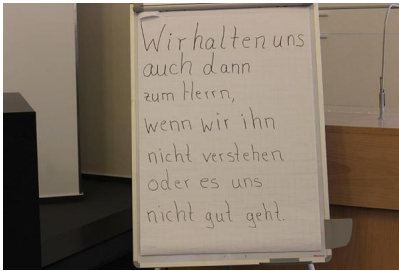 Wir halten uns
auch dann
zum Herrn,
wenn wir ihn
nicht verstehen
oder es uns
nicht gut geht.